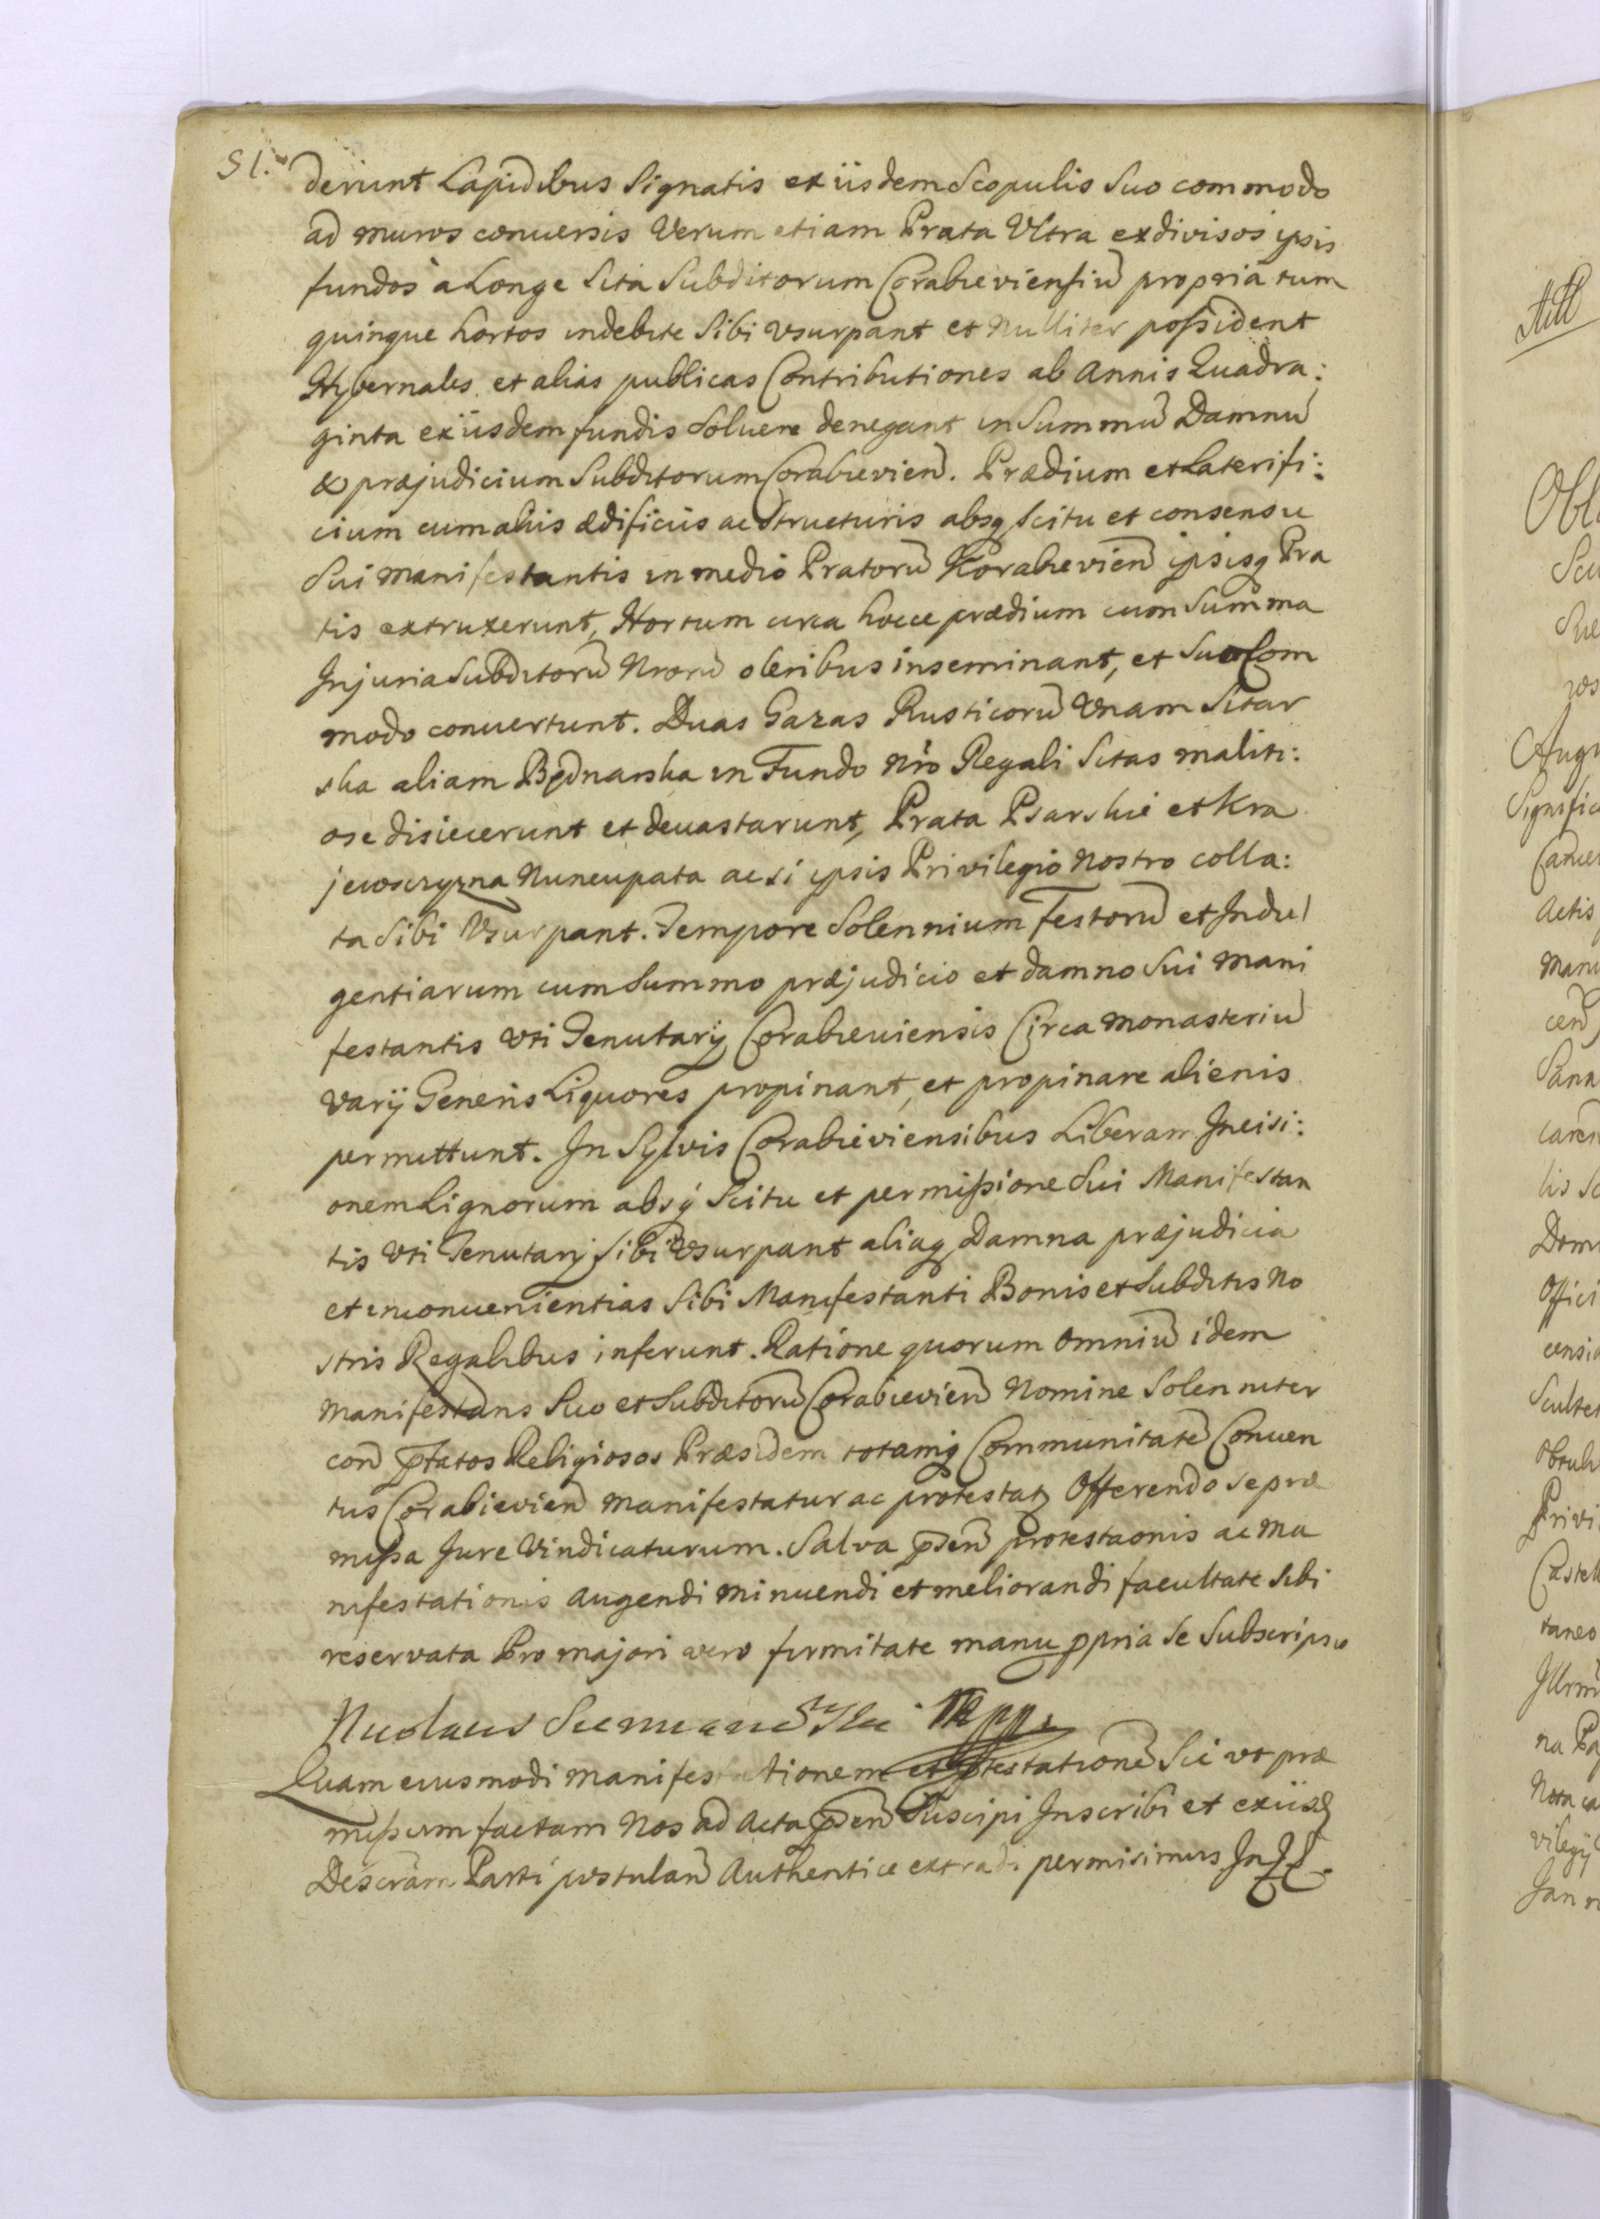 51.
derunt Lapidibus Signatis ex iisdem Scopulis Suo commodo
ad muros conuersis Verum etiam Prata Ultra exdivisos ipsis
fundos a Longe Sita Subditorum Corabieviensiũ propria tum
quinque hortos indebite Sibi vsurpant et Nulliter possident
Hybernales et alias publicas Contributiones ab Annis Quadra:
ginta ex iisdem fundis Soluere denegant in Summũ Damnũ
& præjudicium Subditorum Corabievieñ. Prædium et Laterifi:
cium cum aliis ædificiis ac Structuris absq Scitu et consensu
Sui manifestantis in medio Pratorũ Korabievieñ ipsisq Pra
tis extruxerunt, Hortum circa hocce prædium cum Summa
Injuria Subditorũ Nrorũ oleribus inseminant, et Suo Com
modo conuertunt. Duas Gazas Rusticorũ Vnam Sitar
ska aliam Bednarska in Fundo Nro Regali Sitas maliti:
ose disiecerunt et deuastarunt, Prata Psarskie et Kra
jewszczyzna Nuncupata ac si ipsis Privilegio Nostro colla:
ta Sibi Vsurpant. Tempore Solennium Festorũ et Indul
gentiarum cum Summo præjudicio et damno Sui Mani
festantis Vti Tenutarij Corabieuiensis Circa Monasteriũ
Varij Generis Liquores propinant, et propinare alienis
permittunt. In Sylvis Corabieviensibus Liberam Incisi:
onem Lignorum absq Scitu et permissione Sui Manifestan
tis Vti Tenutarij Sibi Vsurpant aliaq Damna præjudicia
et inconuenientias Sibi Manifestanti Bonis et Subditis No
stris Regalibus inferunt. Ratione quorum Omniũ idem
Manifestans Suo et Subditorũ Corabievieñ Nomine Solenniter
coñ ptatos Religiosos Præsidem totamq Communitatẽ Conuen
tus Corabievieñ manifestatur ac protestatȝ Offerendo se præ
missa Jure Vindicaturum. Salva pseñ protestaonis ac Ma
nifestationis augendi minuendi et meliorandi facultate Sibi
reservata Pro majori vero firmitate manu ppria Se Subscripsit
Quam eiusmodi manifestationem et ptestationẽ Sic vt præ
missum factam Nos ad Acta pseñ Suscipi Inscribi et ex iisd
Descram Parti postulañ Authentice extradi permisimus In